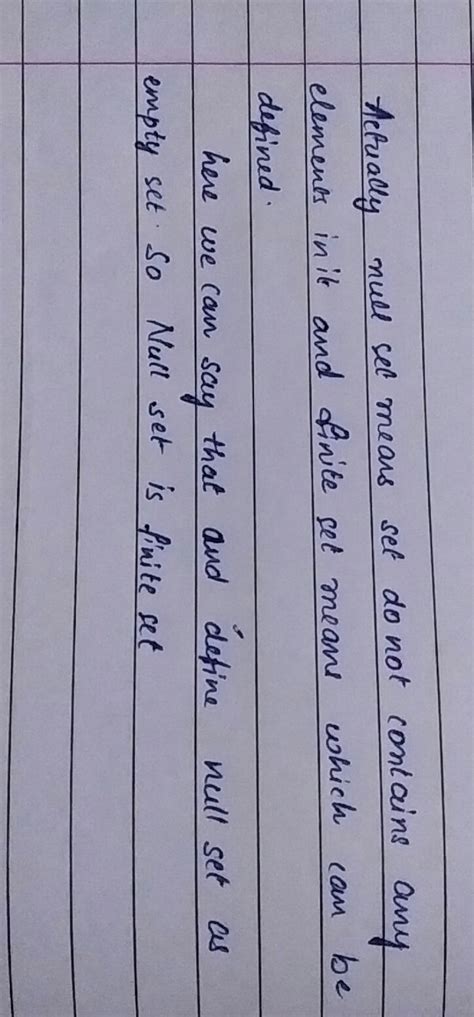 Actually null set means set do not contains any
elements in it and finite set means which can be
defined.
here we can say that and define null set as
empty set. So Null set is finite set